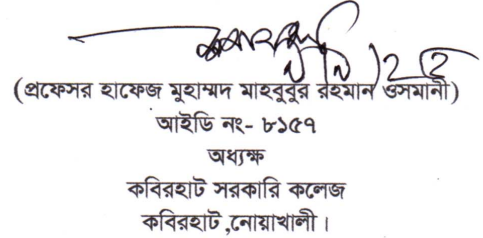 (প্রফেসর হাফেজ মুহাম্মদ মাহবুবুর রহমান ওসমানী)
আইডি নং- ৮১৫৭
অধ্যক্ষ
কবিরহাট সরকারি কলেজ
কবিরহাট ,নোয়াখালী।